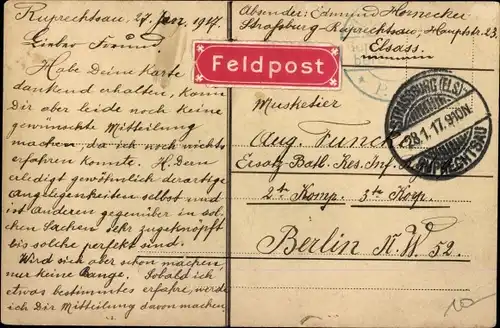 Ruprechtsau, 27. Jan. 1917.
Lieber Freund.
Habe Deine Karte
dankend erhalten, kann
Dir aber leide noch keine
gewünschte Mitteilung
machen, da ich noch nichts
erfahren konnte. H. Dern
erledigt gewöhnlich derartige
Angelegenheiten selbst und
ist anderen gegenüber in sol-
chen Sachen sehr zugeknöpft
bis solche perfekt sind.
Wird sich aber schon machen,
nur keine Bange. Sobald ich
etwas bestimmtes erfahre, werde
ich Dir Mitteilung davon machen.
Absender: Edmund Hornecker
Strassburg-Ruprechtsau, Hauptstr. 23
Elsass.
Feldpost
STRASSBURG (ELS)
28.1.17. 9-10N.
RUPRECHTSAU
Musketier
Aug. Funck
Ersatz-Batl. Res. Inf.
2te Komp. 3te Korp.
Berlin N.W. 52.